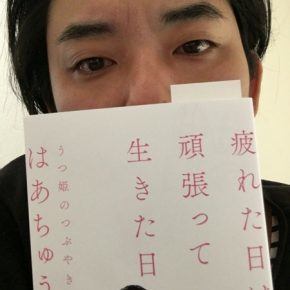 疲れた日は
頑張って
生きた日
うつ姫のつぶやき
はあちゅう